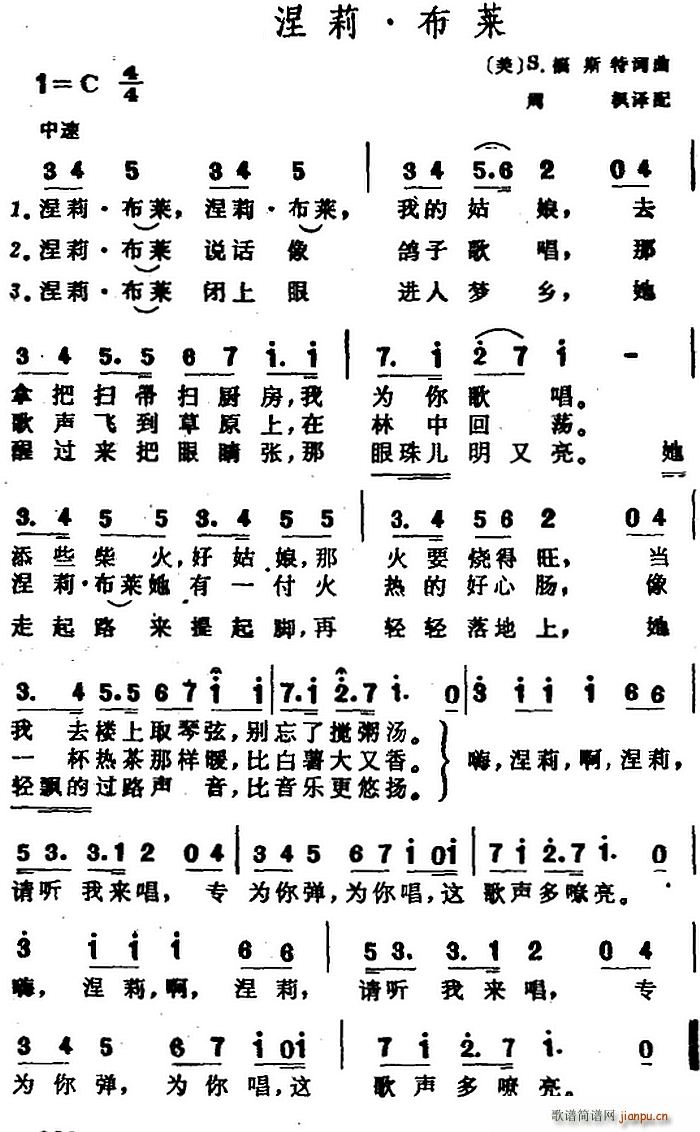 涅莉·布莱
1=C 4/4
〔美〕S.福斯特词曲
周枫译配
中速
3 4 5 3 4 5 | 3 4 5.6 2 0 4 |
1.涅莉·布莱，涅莉·布莱，我的姑娘，去
2.涅莉·布莱说话像鸽子歌唱，那
3.涅莉·布莱闭上眼进入梦乡，她
3 4 5. 5 6 7 i. i | 7. i 2 7 i - |
拿把扫帚扫厨房，我为你歌唱。
歌声飞到草原上，在林中回荡。
醒过来把眼睛张，那眼珠儿明又亮。她
3. 4 5 5 3. 4 5 5 | 3. 4 5 6 2 0 4 |
添些柴火，好姑娘，那火要烧得旺，当
涅莉·布莱她有一付火热的好心肠，像
走起路来提起脚，再轻轻落地上，她
3. 4 5.5 6 7 i i | 7.i 2.7 i. 0 | 3 i i i 6 6 |
我去楼上取琴弦，别忘了搅粥汤。
一杯热茶那样暖，比白薯大又香。
轻飘的过路声音，比音乐更悠扬。
嗨，涅莉，啊，涅莉，
5 3. 3.1 2 0 4 | 3 4 5 6 7 i 0 i | 7 i 2.7 i. 0
请听我来唱，专为你弹，为你唱，这歌声多嘹亮。
3 i i i 6 6 | 5 3. 3. 1 2 0 4 |
嗨，涅莉，啊，涅莉，请听我来唱，专
3 4 5 6 7 i 0 i | 7 i 2. 7 i. 0
为你弹，为你唱，这歌声多嘹亮。
歌谱简谱网 jianpu.cn